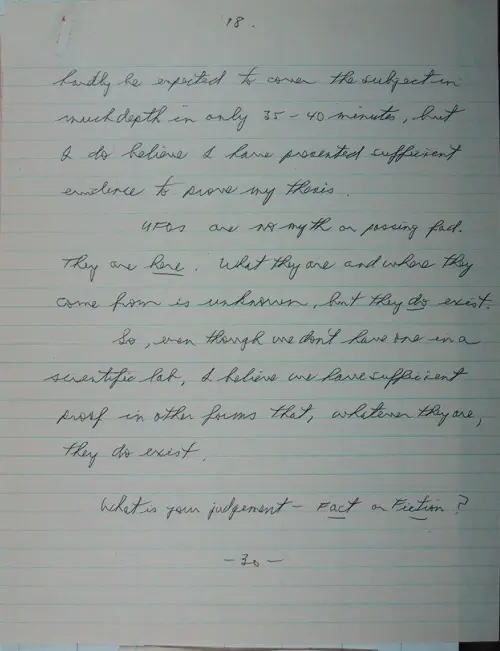 18.
hardly be expected to cover the subject in
much depth in only 35-40 minutes, but
I do believe I have presented sufficient
evidence to prove my thesis.
UFOs are no myth or passing fad.
They are here. What they are and where they
come from is unknown, but they do exist.
So, even though we don't have one in a
scientific lab, I believe we have sufficient
proof in other forms that, whatever they are,
they do exist.
What is your judgement - Fact or Fiction?
-30-